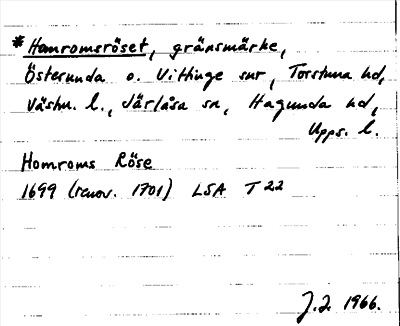 * Homromsröset, gränsmärke,
Österunda o. Vittinge snr, Torstuna hd,
Västm. l., Järlåsa sn, Hagunda hd,
Upps. l.
Homroms Röse
1699 (renov. 1701) LSA T 22
J.J. 1966.